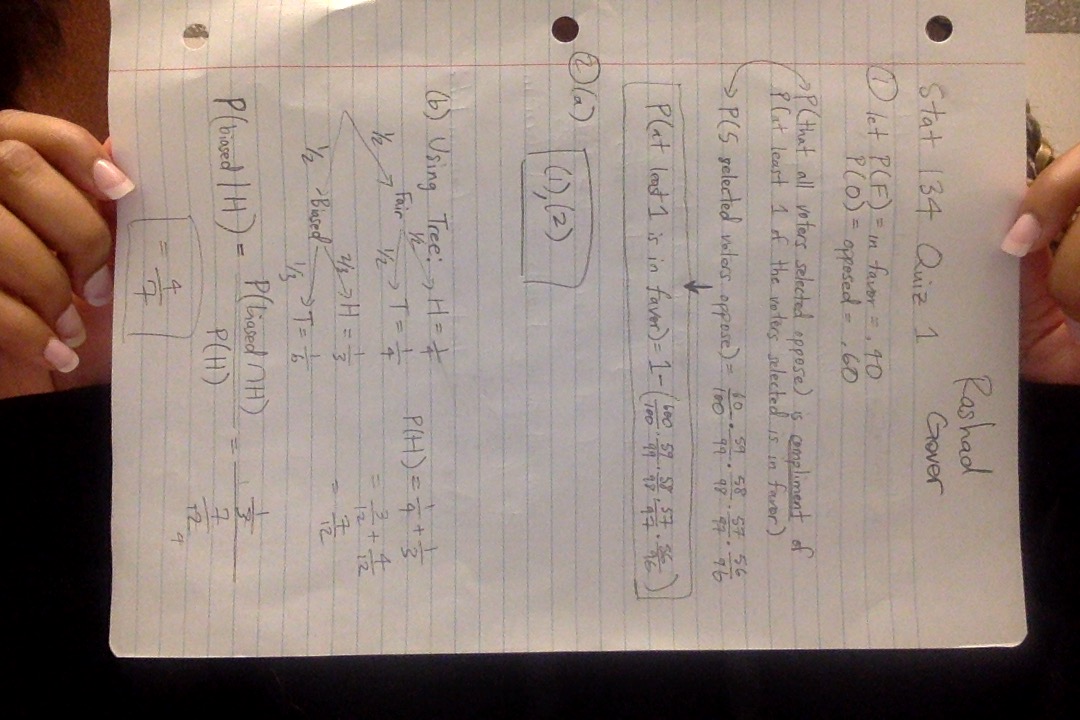 Rashad
Grover
Stat 134 Quiz 1
① let P(F) = in favor = .40
P(O) = opposed = .60
P(that all voters selected oppose) is compliment of
P(at least 1 of the voters selected is in favor)
→ P(5 selected voters oppose) = 60/100 · 59/99 · 58/98 · 57/97 · 56/96
P(at least 1 is in favor) = 1 - (60/100 · 59/99 · 58/98 · 57/97 · 56/96)
② (a) (1), (2)
(b) Using Tree:
1/2 → Fair 1/2 → H = 1/4
1/2 → T = 1/4
1/2 → Biased 2/3 → H = 1/3
1/3 → T = 1/6
P(H) = 1/4 + 1/3
= 3/12 + 4/12
= 7/12
P(biased | H) = P(biased ∩ H) / P(H) = 1/3 / 7/12
= 4/7